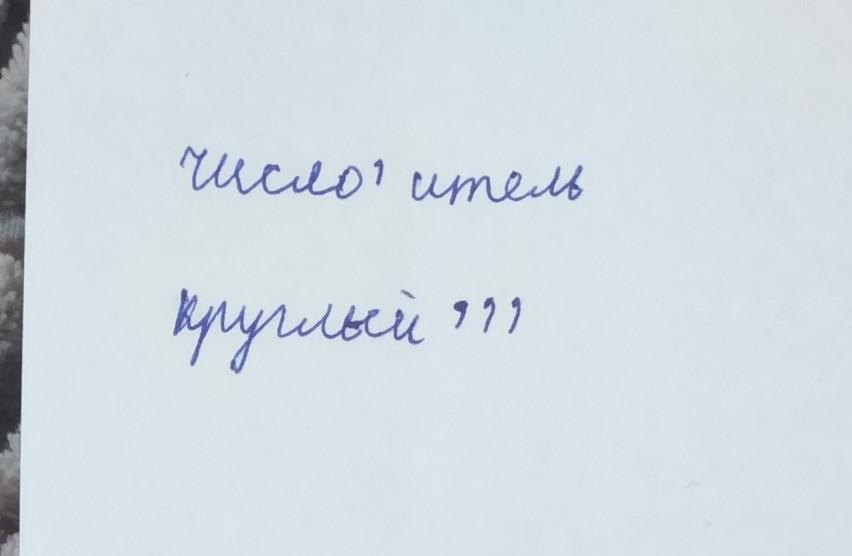 число' итель
круглый '''